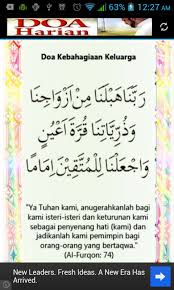 12:27 AM
DOA
Harian
Doa Kebahagiaan Keluarga
رَبَّنَا هَبْلَنَا مِنْ أَزْوَاجِنَا
وَذُرِّيَاتِنَا قُرَّةَ أَعْيُنٍ
وَاجْعَلْنَا لِلْمُتَّقِيْنَ إِمَامًا
"Ya Tuhan kami, anugerahkanlah bagi
kami isteri-isteri dan keturunan kami
sebagai penyenang hati (kami) dan
jadikanlah kami pemimpin bagi
orang-orang yang bertaqwa."
(Al-Furqon: 74)
New Leaders. Fresh Ideas. A New Era Has
Arrived.